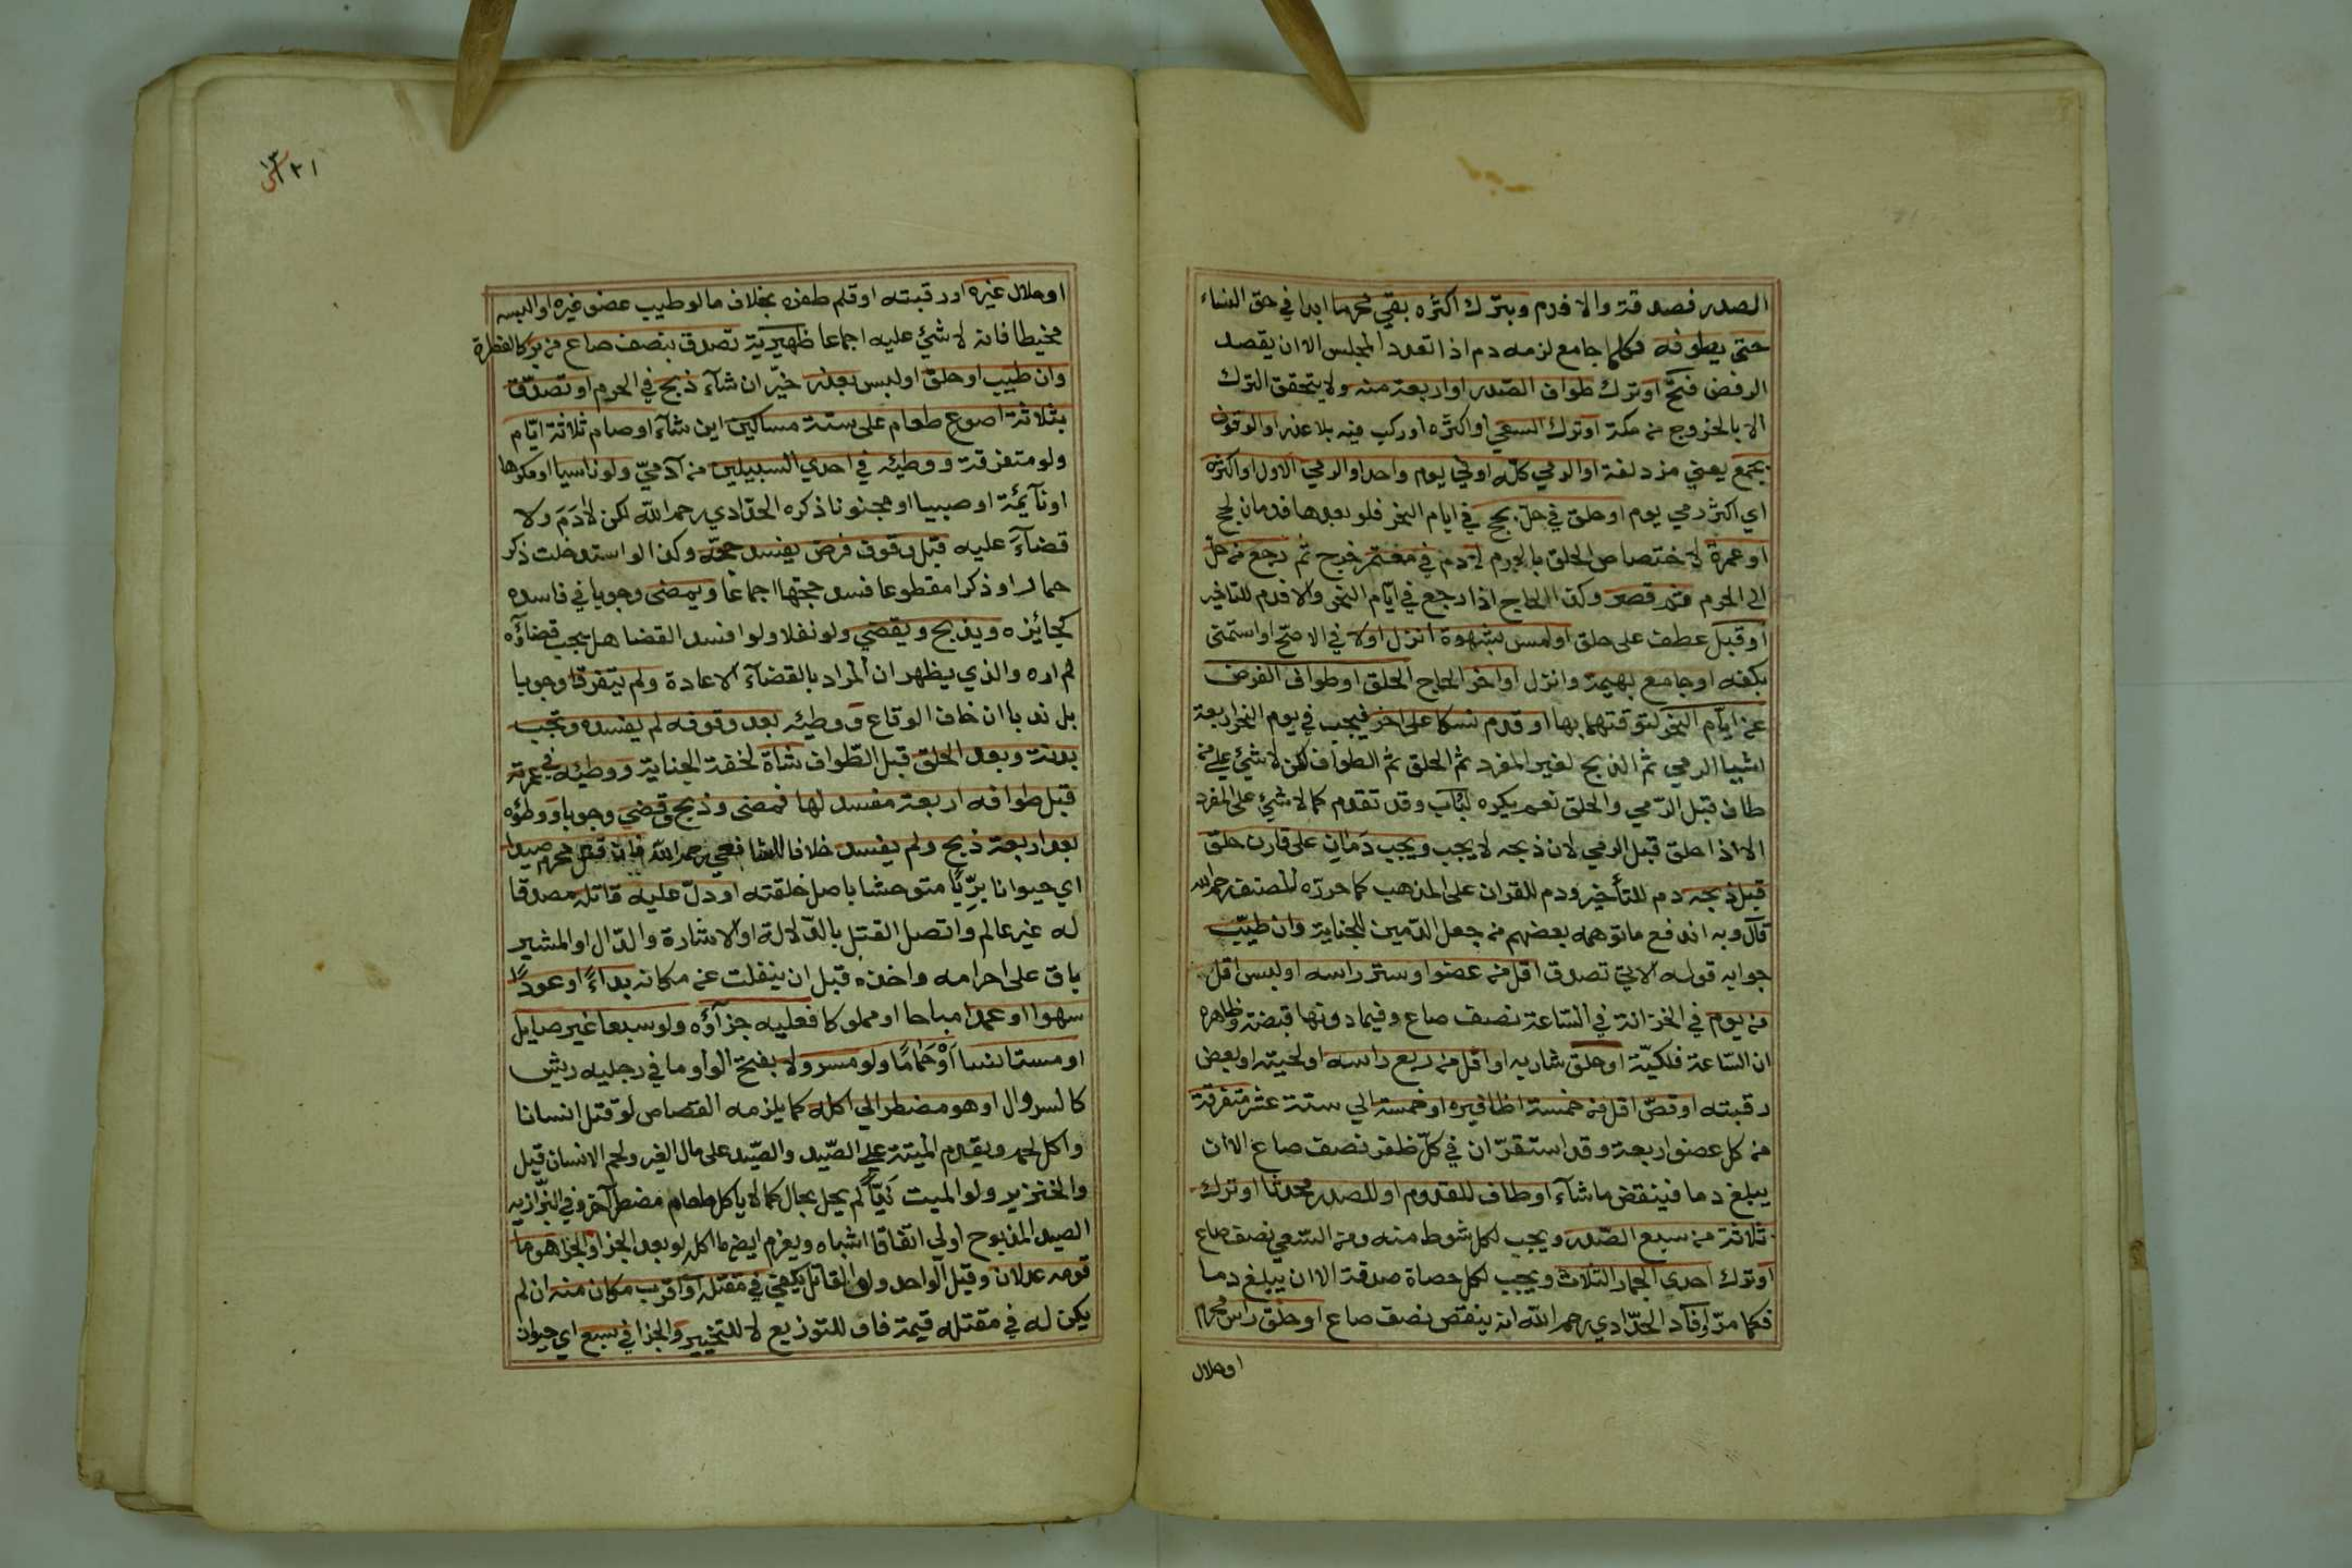 الصدر فصدقة والا فدم وبترك اكثره بقي محرما ابدا في حق النساء
حتى يطوفه فكلما جامع لزمه دم اذا تعدد المجلس الا ان يقصد
الرفض فتح او ترك طواف الصدر او اربعة منه ولا يتحقق الترك
الا بالخروج من مكة او ترك السعي او اكثره او ركب فيه بلا عذر او الوقوف
بجمع يعني مزدلفة او الرمي كله او في يوم واحد او الرمي الاول او اكثره
اي اكثر رمي يوم او حلق في حل بحج في ايام النحر فلو بعدها فدمان لحج
او عمرة لاختصاص الحلق بالحرم لا دم في معتمر خرج ثم رجع من حل
الى الحرم ثم قصر وكذا الحاج اذا رجع في ايام النحر والا فدم للتاخير
او قبل عطف على حلق او لمس بشهوة انزل اولا في الاصح او استمنى
بكفه او جامع بهيمة وانزل او اخر الحاج الحلق او طواف الفرض
عن ايام النحر لتوقتهما بها او قدم نسكا على اخر فيجب في يوم النحر اربعة
اشيا الرمي ثم الذبح لغير المفرد ثم الحلق ثم الطواف لكن لا شيئ على من
طاف قبل الرمي والحلق نعم يكره لباب وقد تقدم كما لا شيئ على المفرد
الا اذا حلق قبل الرمي لان ذبحه لا يجب ويجب دمان على قارن حلق
قبل ذبحه دم للتأخير ودم للقران على المذهب كما حرره المصنف رحمه الله
قال وبه اندفع ما توهمه بعضهم من جعل الدمين للجناية وان طيب
جوابه قوله الاتي تصدق اقل من عضو او ستر راسه او لبس اقل
من يوم في الخزانة في الساعة نصف صاع وفيما دونها قبضة وظاهره
ان الساعة فلكية او حلق شاربه او اقل من ربع راسه او لحيته او بعض
رقبته او قص اقل من خمسة اظافيره او خمسة الي ستة عشر متفرقة
من كل عضو اربعة وقد استقر ان في كل ظفر نصف صاع الا ان
يبلغ دما فينقص ما شآء او طاف للقدوم او للصدر محدثا او ترك
ثلاثة من سبع الصدر ويجب لكل شوط منه ومن السعي نصف صاع
او ترك احدى الجمار الثلاث ويجب لكل حصاة صدقة الا ان يبلغ دما
فكما مر وافاد الحدادي رحمه الله انه ينقص نصف صاع او حلق راس محرم
او حلال
١٢١
او حلال غيره او رقبته او قلم ظفره بخلاف ما لو طيب عضو غيره او البسه
مخيطا فانه لا شيئ عليه اجماعا ظهيرية تصدق بنصف صاع من بر كالفطرة
وان طيب او حلق او لبس بعذر خير ان شآء ذبح في الحرم او تصدق
بثلاثة اصوع طعام على ستة مساكين اين شآء او صام ثلاثة ايام
ولو متفرقة ووطيئه في احدي السبيلين من آدمي ولو ناسيا او مكرها
او نآيمة او صبيا او مجنونا ذكره الحدادي رحمه الله لكن لا دم ولا
قضآء عليه قبل وقوف فرض يفسد حجه وكذا لو استدخلت ذكر
حمار او ذكرا مقطوعا فسد حجها اجماعا ويمضى وجوبا في فاسده
كجائزه ويذبح ويقضي ولو نفلا ولو افسد القضا هل يجب قضآؤه
لم اره والذي يظهر ان المراد بالقضآء الاعادة ولم يتفرقا وجوبا
بل ندبا ان خاف الوقاع ووطيئه بعد وقوفه لم يفسده وتجب
بدنة وبعد الحلق قبل الطواف شاة لخفة الجناية ووطيئه في عمرته
قبل طوافه اربعة مفسد لها فمضى وذبح وقضي وجوبا ووطؤه
بعد اربعة ذبح ولم يفسد خلافا للشافعي رحمه الله فان قتل محرم صيدا
اي حيوانا بريا متوحشا باصل خلقته او دل عليه قاتله مصدقا
له غير عالم واتصل القتل بالدلالة او الاشارة والدال او المشير
باق على احرامه واخذه قبل ان ينفلت عن مكانه بداءً او عوداً
سهوا او عمدا مباحا او مملوكا فعليه جزآؤه ولو سبعا غير صايل
او مستانسا او حماما ولو مسرولا بفتح الواو ما في رجليه ريش
كالسروال او هو مضطر الي اكله كما يلزمه القصاص لو قتل انسانا
واكل لحمه ويقدم الميتة على الصيد والصيد على مال الغير ولحم الانسان قيل
والخنزير ولو الميت نبيا لم يحل بحال كما لا ياكل طعام مضطر آخر وفي البزازيه
الصيد المذبوح اولي اتفاقا اشباه ويغرم ايضا ما اكله لو بعد الجزا والجزا هو ما
قومه عدلان وقيل الواحد ولو القاتل يكفي في مقتله او اقرب مكان منه ان لم
يكن له في مقتله قيمة فاو للتوزيع لا للتخيير والجزا في سبع اي حيوان